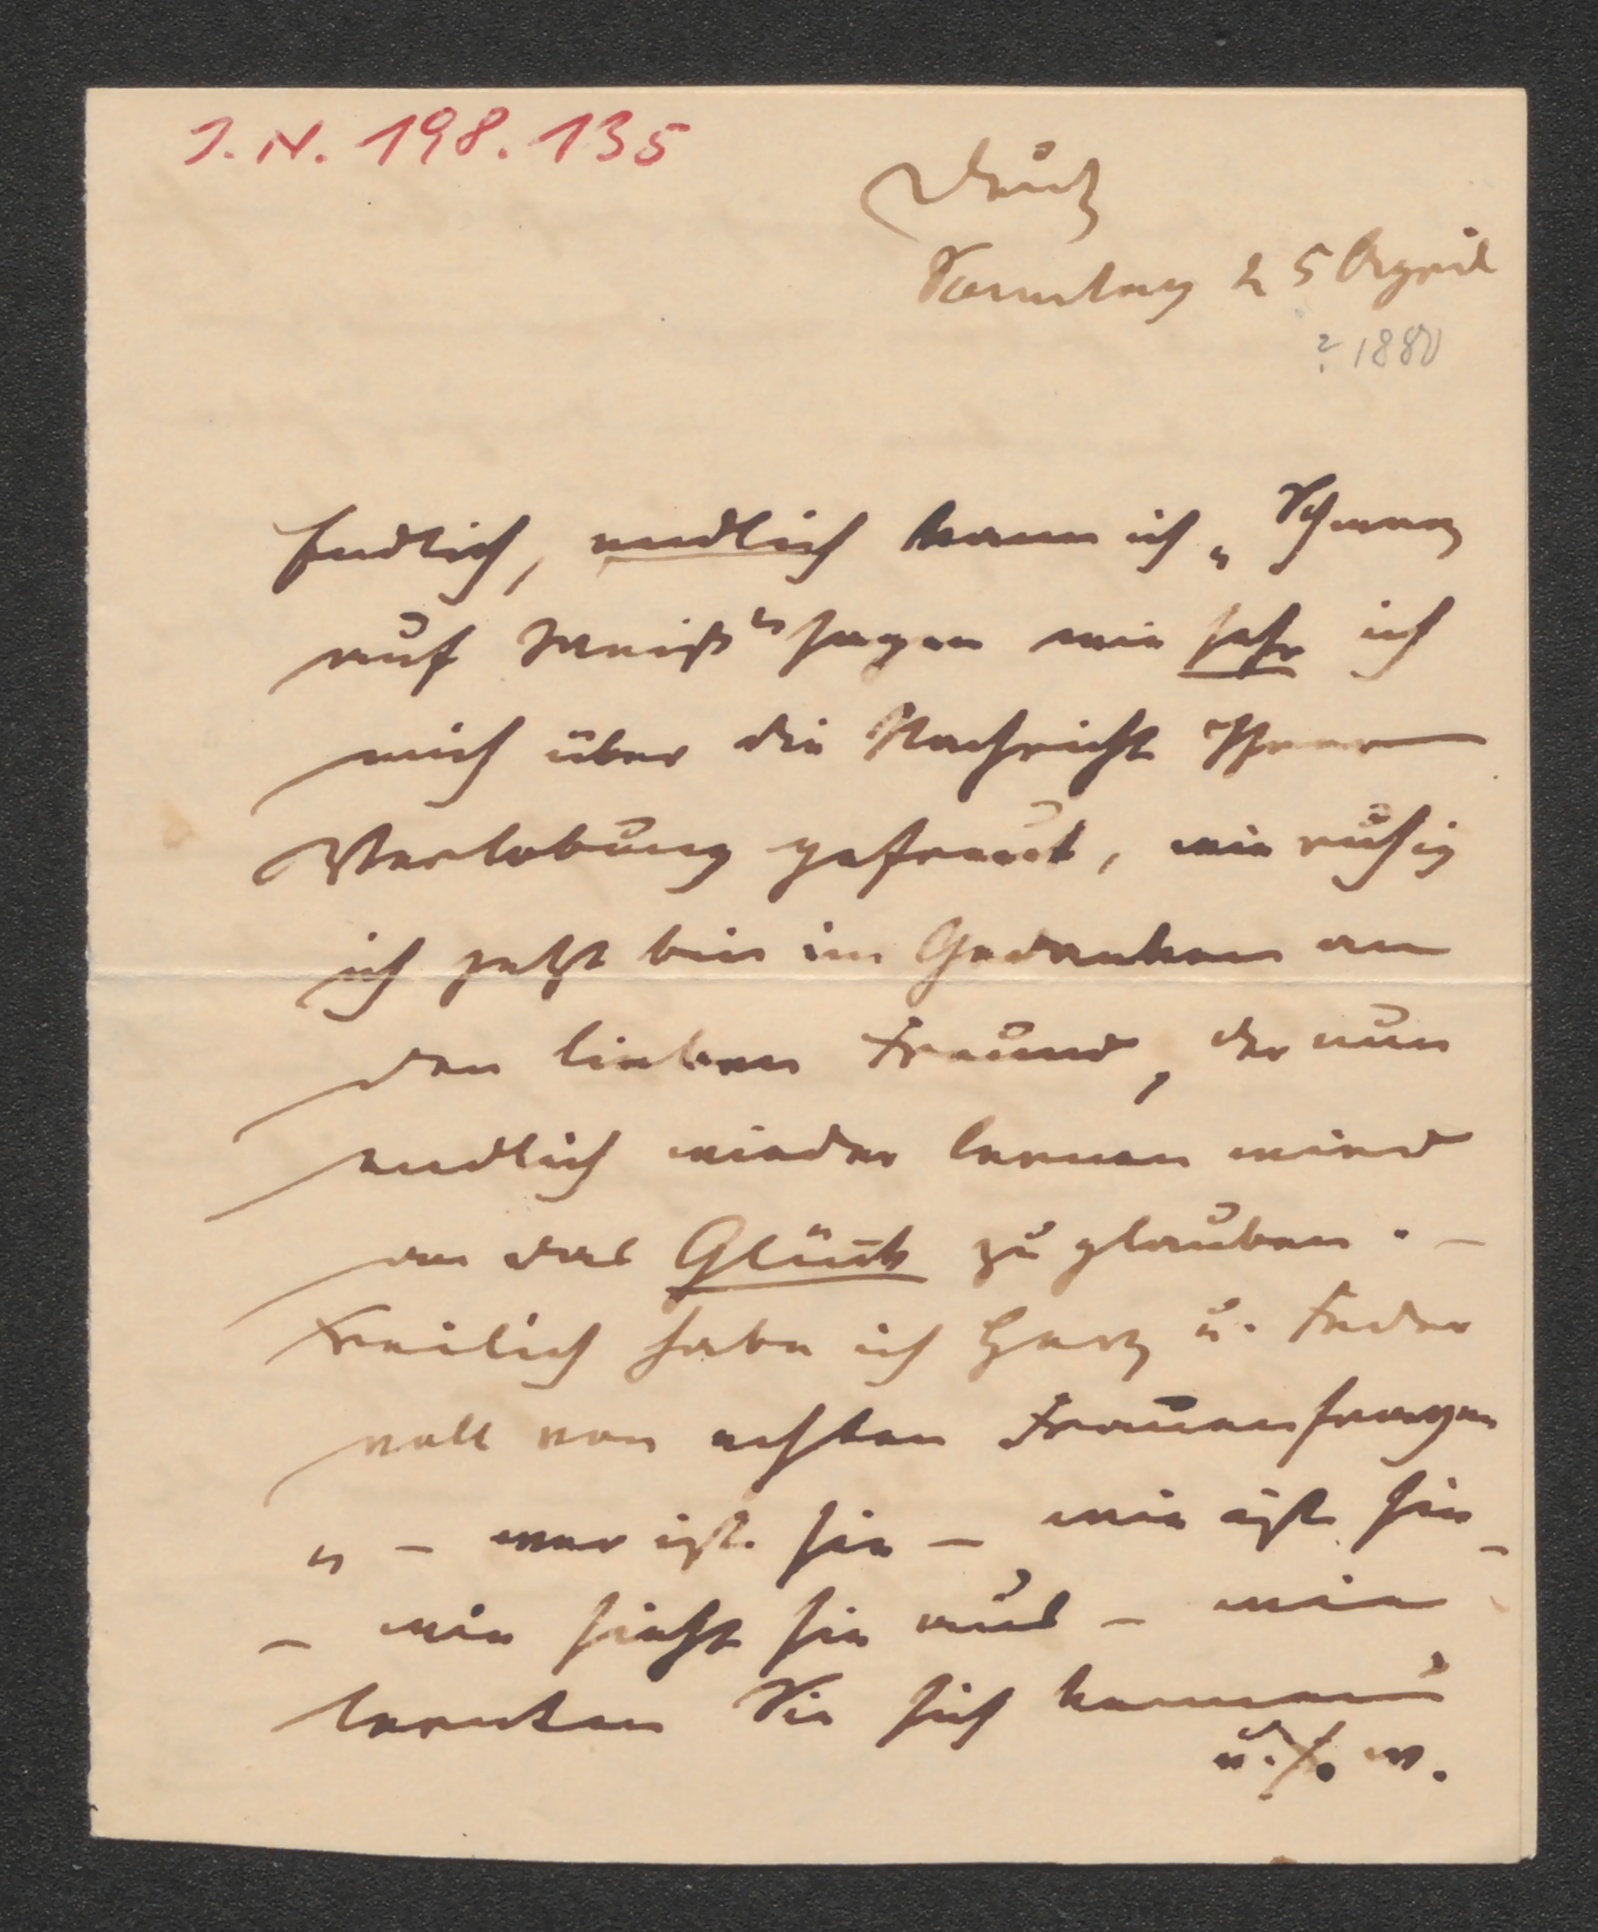 I.N. 198.135
Deutz
Sonntag 25 April
? 1880
Endlich, endlich kann ich „Schwarz
auf Weiß" sagen wie sehr ich
mich über die Nachricht Ihrer
Verlobung gefreut, wie ruhig
ich jetzt bin im Gedanken an
den lieben Freund, der nun
endlich wieder lernen wird
an das Glück zu glauben. –
Freilich habe ich Herz u. Feder
voll von echten Frauenfragen
„ – wer ist sie – wie ist sie –
– wie sieht sie aus – wie
lernten Sie sich kennen"
u. s. w.